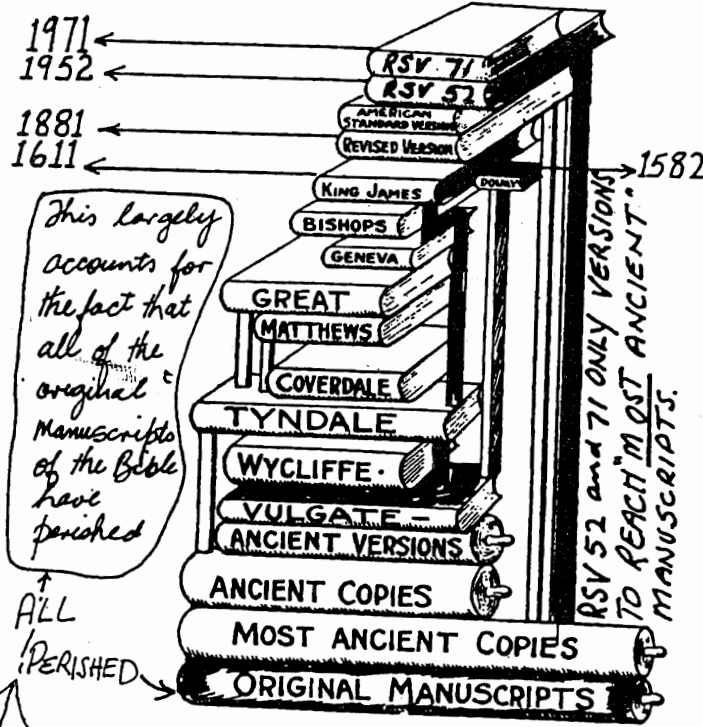 1971
1952
1881
1611
1582
RSV 71
RSV 52
AMERICAN
STANDARD VERSION
REVISED VERSION
KING JAMES
DOUAY
BISHOPS
GENEVA
GREAT
MATTHEWS
COVERDALE
TYNDALE
WYCLIFFE.
VULGATE-
ANCIENT VERSIONS
ANCIENT COPIES
MOST ANCIENT COPIES
ORIGINAL MANUSCRIPTS
This largely
accounts for
the fact that
all of the
original
manuscripts
of the Bible
have
perished
ALL
PERISHED
RSV 52 and 71 ONLY VERSIONS
TO REACH "MOST ANCIENT"
MANUSCRIPTS.